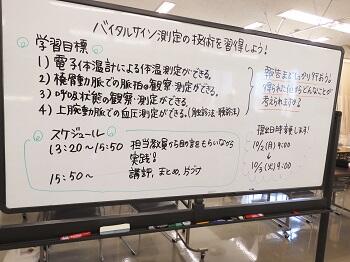 バイタルサイン測定の技術を習得しよう!
学習目標
1) 電子体温計による体温測定ができる。
2) 橈骨動脈での脈拍の観察・測定ができる。
3) 呼吸状態の観察・測定ができる。
4) 上腕動脈での血圧測定ができる。(触診法・聴診法)
報告までしっかり行おう。
得られた値からどんなことが
考えられますか?
スケジュール
13:20〜15:50 担当教員から助言をもらいながら
実践!
15:50〜 講評、まとめ、片づけ
提出日時変更します!
10/2(月) 9:00
↓
10/3(火) 9:00